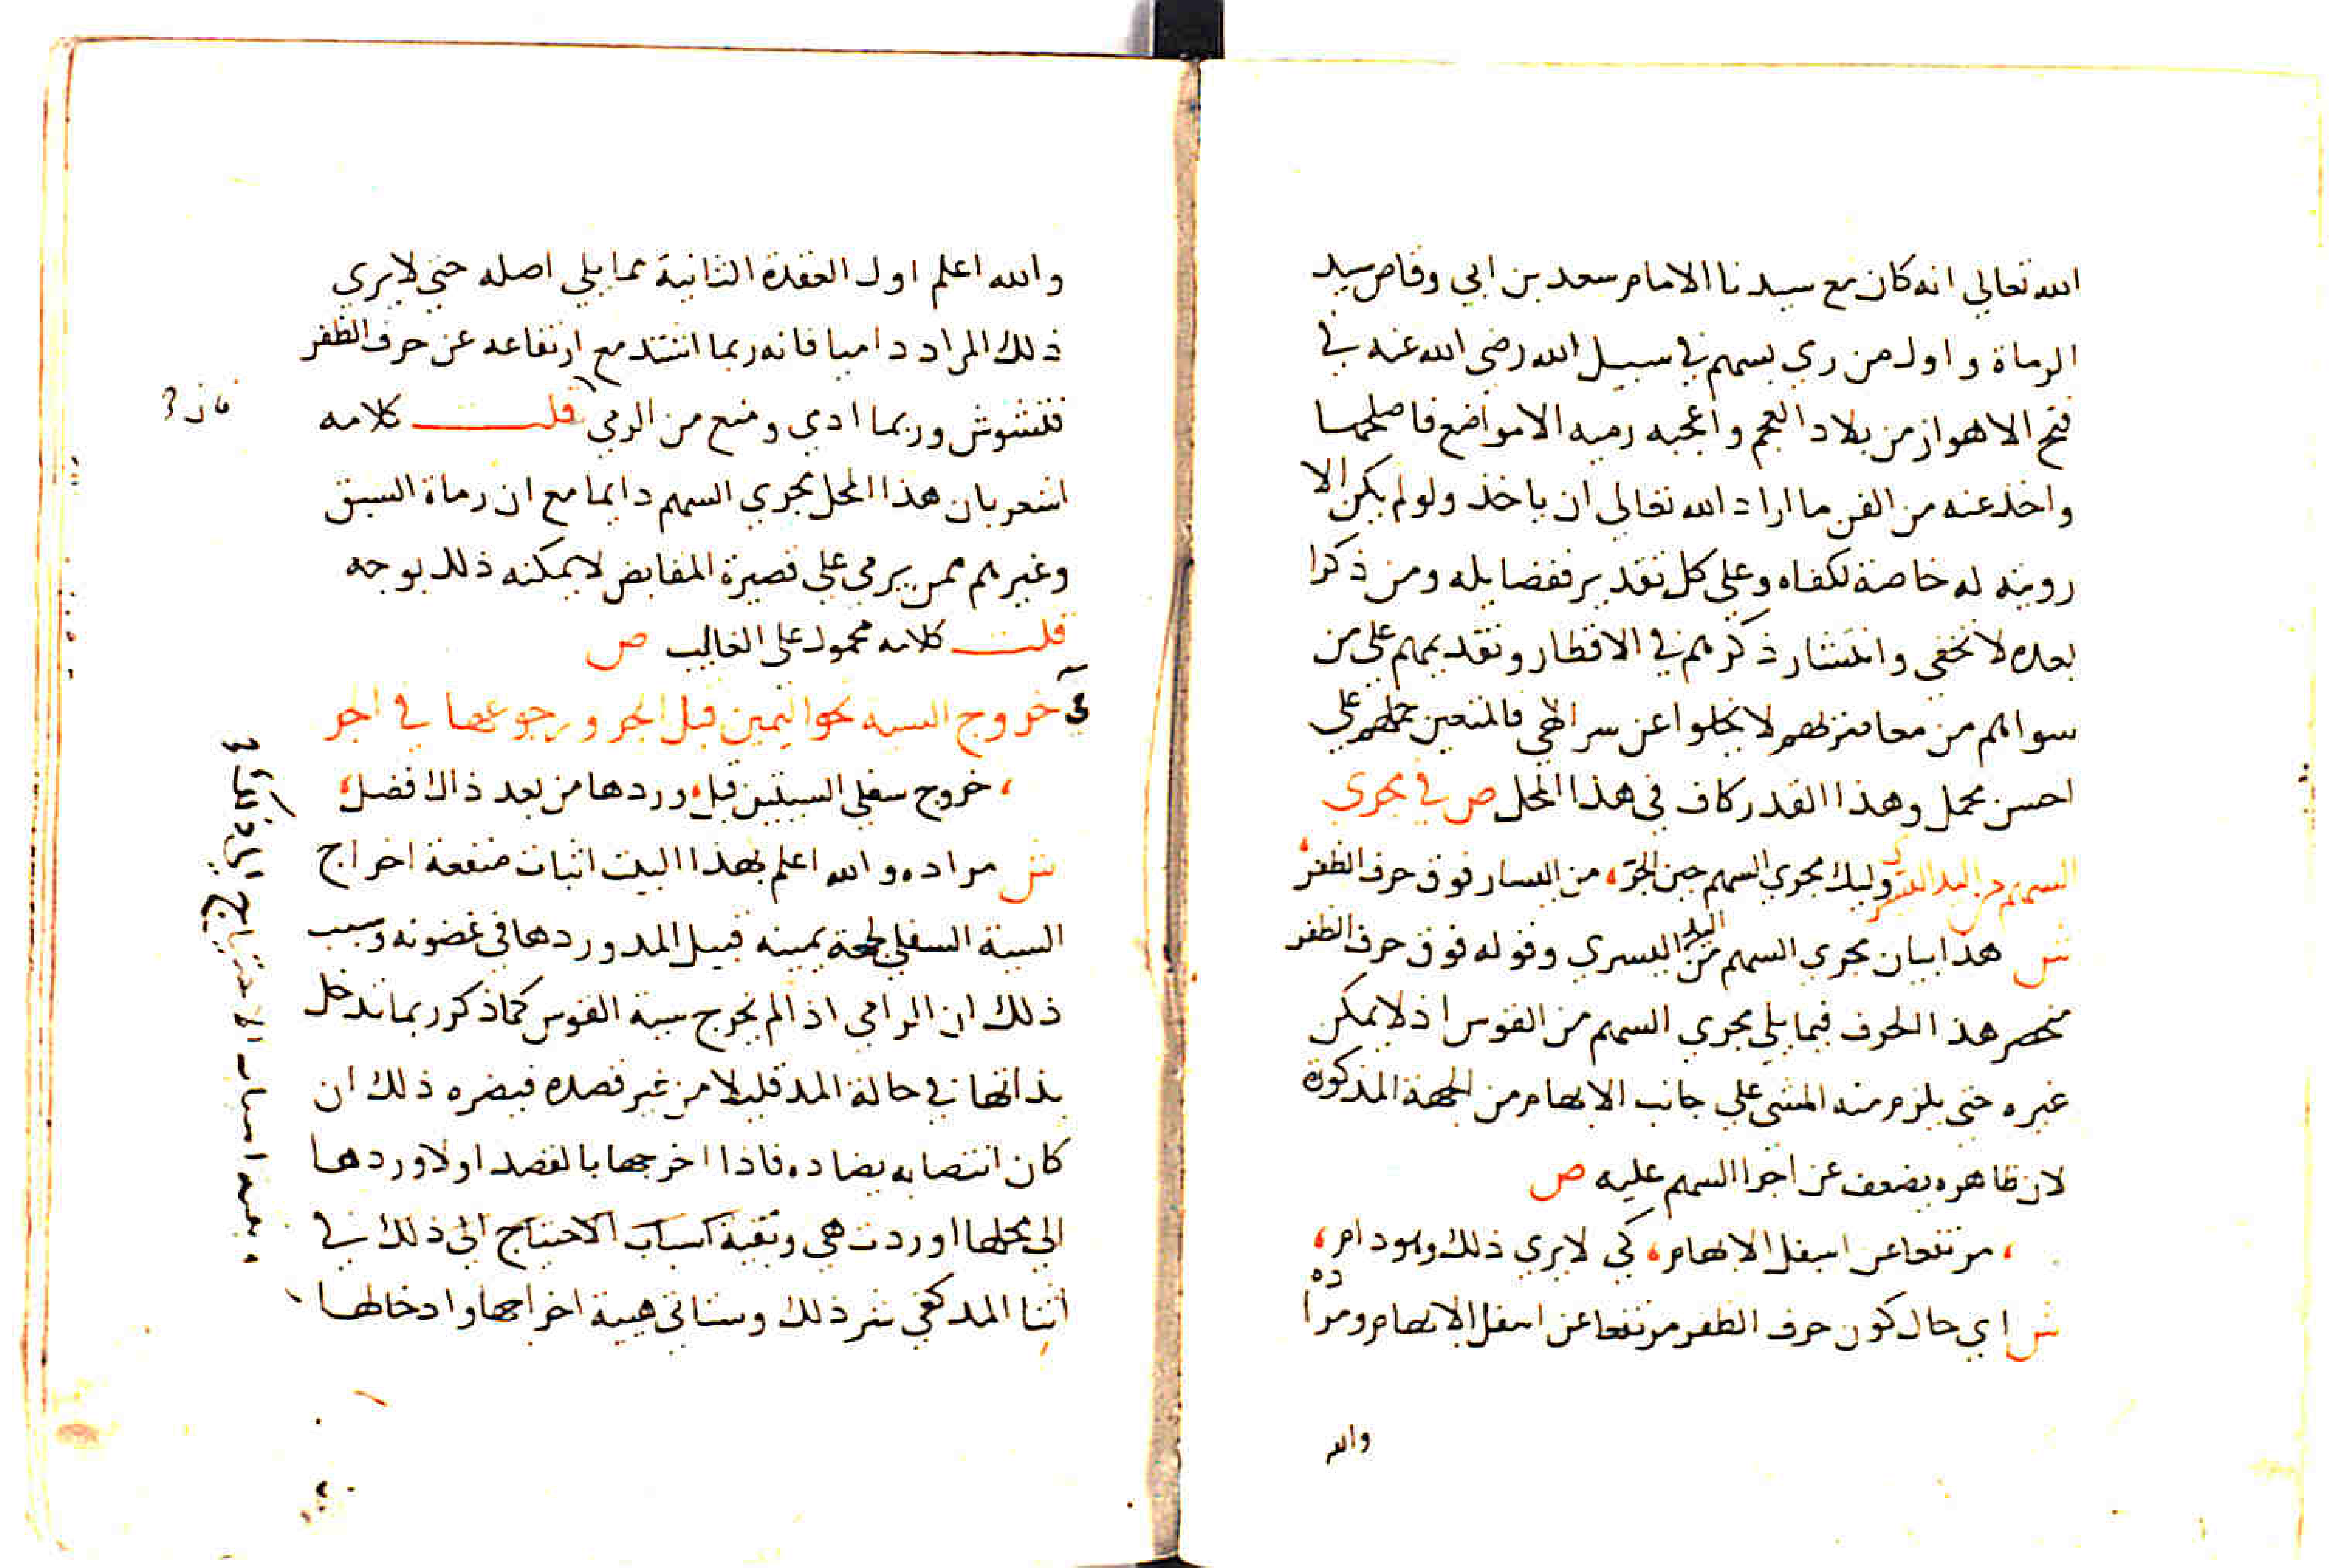 الله تعالي انه كان مع سيدنا الامام سعد بن ابي وقاص سيد
الرماة واول من رمي بسهم في سبيل الله رضي الله عنه في
فتح الاهواز من بلاد العجم واعجبه رميه الا مواضع فاصلحها
واخذ عنه من الفن ما اراد الله تعالي ان ياخذ ولو لم يكن الا
رويته له خاصة لكفاه وعلى كل تقدير ففضايله ومن ذكرا
بعده لا تخفي وانتشار ذكرهم في الاقطار وتقديمهم علي من
سواهم من معاصريهم لا يخلوا عن سر الاهي فالمتعين حملهم علي
احسن محمل وهذا القدر كاف في هذا المحل ص في مجري
السهم من اليد وليك مجري السهم حين الجر، من اليسار فوق حرف الظفر،
ش هذا بيان مجري السهم من اليد اليسري وقوله فوق حرف الظفر
منحصر هذا الحرف فيما يلي مجري السهم من القوس اذ لا يمكن
غيره حتى يلزم منه المشي علي جانب الابهام من الجهة المذكورة
لان ظاهره يضعف عن اجرا السهم عليه ص
، مرتفعا عن اسفل الابهام، كي لا يري ذلك وهو دام،
ش اي حال كون حرف الظفر مرتفعا عن اسفل الابهام ومراده
والله
والله اعلم اول العقدة الثانية مما يلي اصله حتي لا يري
ذلك المراد داميا فانه ربما اشتد مع ارتفاعه عن حرف الظفر
فتشوش وربما ادي ومنع من الرمي قلت كلامه
اشعر بان هذا المحل مجري السهم دايما مع ان رماة السبق
وغيرهم ممن يرمي علي قصيرة المقابض لا يمكنه ذلك بوجه
قلت كلامه محمول على الغالب ص
في خروج السية نحو اليمين قبل الجر ورجوعها في الجر
، خروج سفلي السيتين قبل، وردها من بعد ذاك افضل،
ش مراده والله اعلم بهذا البيت اثبات منفعة اخراج
السية السفلي لجهة يمينه قبيل المد وردها في غضونه وسبب
ذلك ان الرامي اذا لم يخرج سية القوس كما ذكر ربما تدخل
بذاتها في حالة المد قليلا من غير قصده فيضره ذلك ان
كان انتصابه يضاده فاذا اخرجها بالقصد اولا وردها
الي محلها او ردت هي وتقية اسباب الاحتياج الي ذلك في
اثنا المد كفي شر ذلك وستاتي هيية اخراجها وادخالها